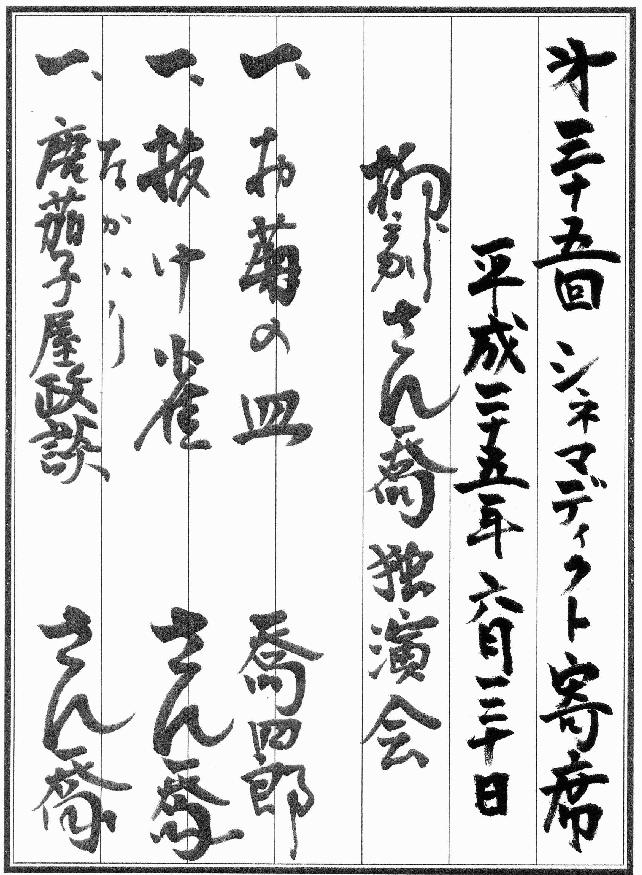 第三十五回 シネマディクト寄席
平成二十五年六月三十日
柳家さん喬独演会
一、お菊の皿 喬四郎
一、抜け雀 さん喬
なかいり
一、唐茄子屋政談 さん喬